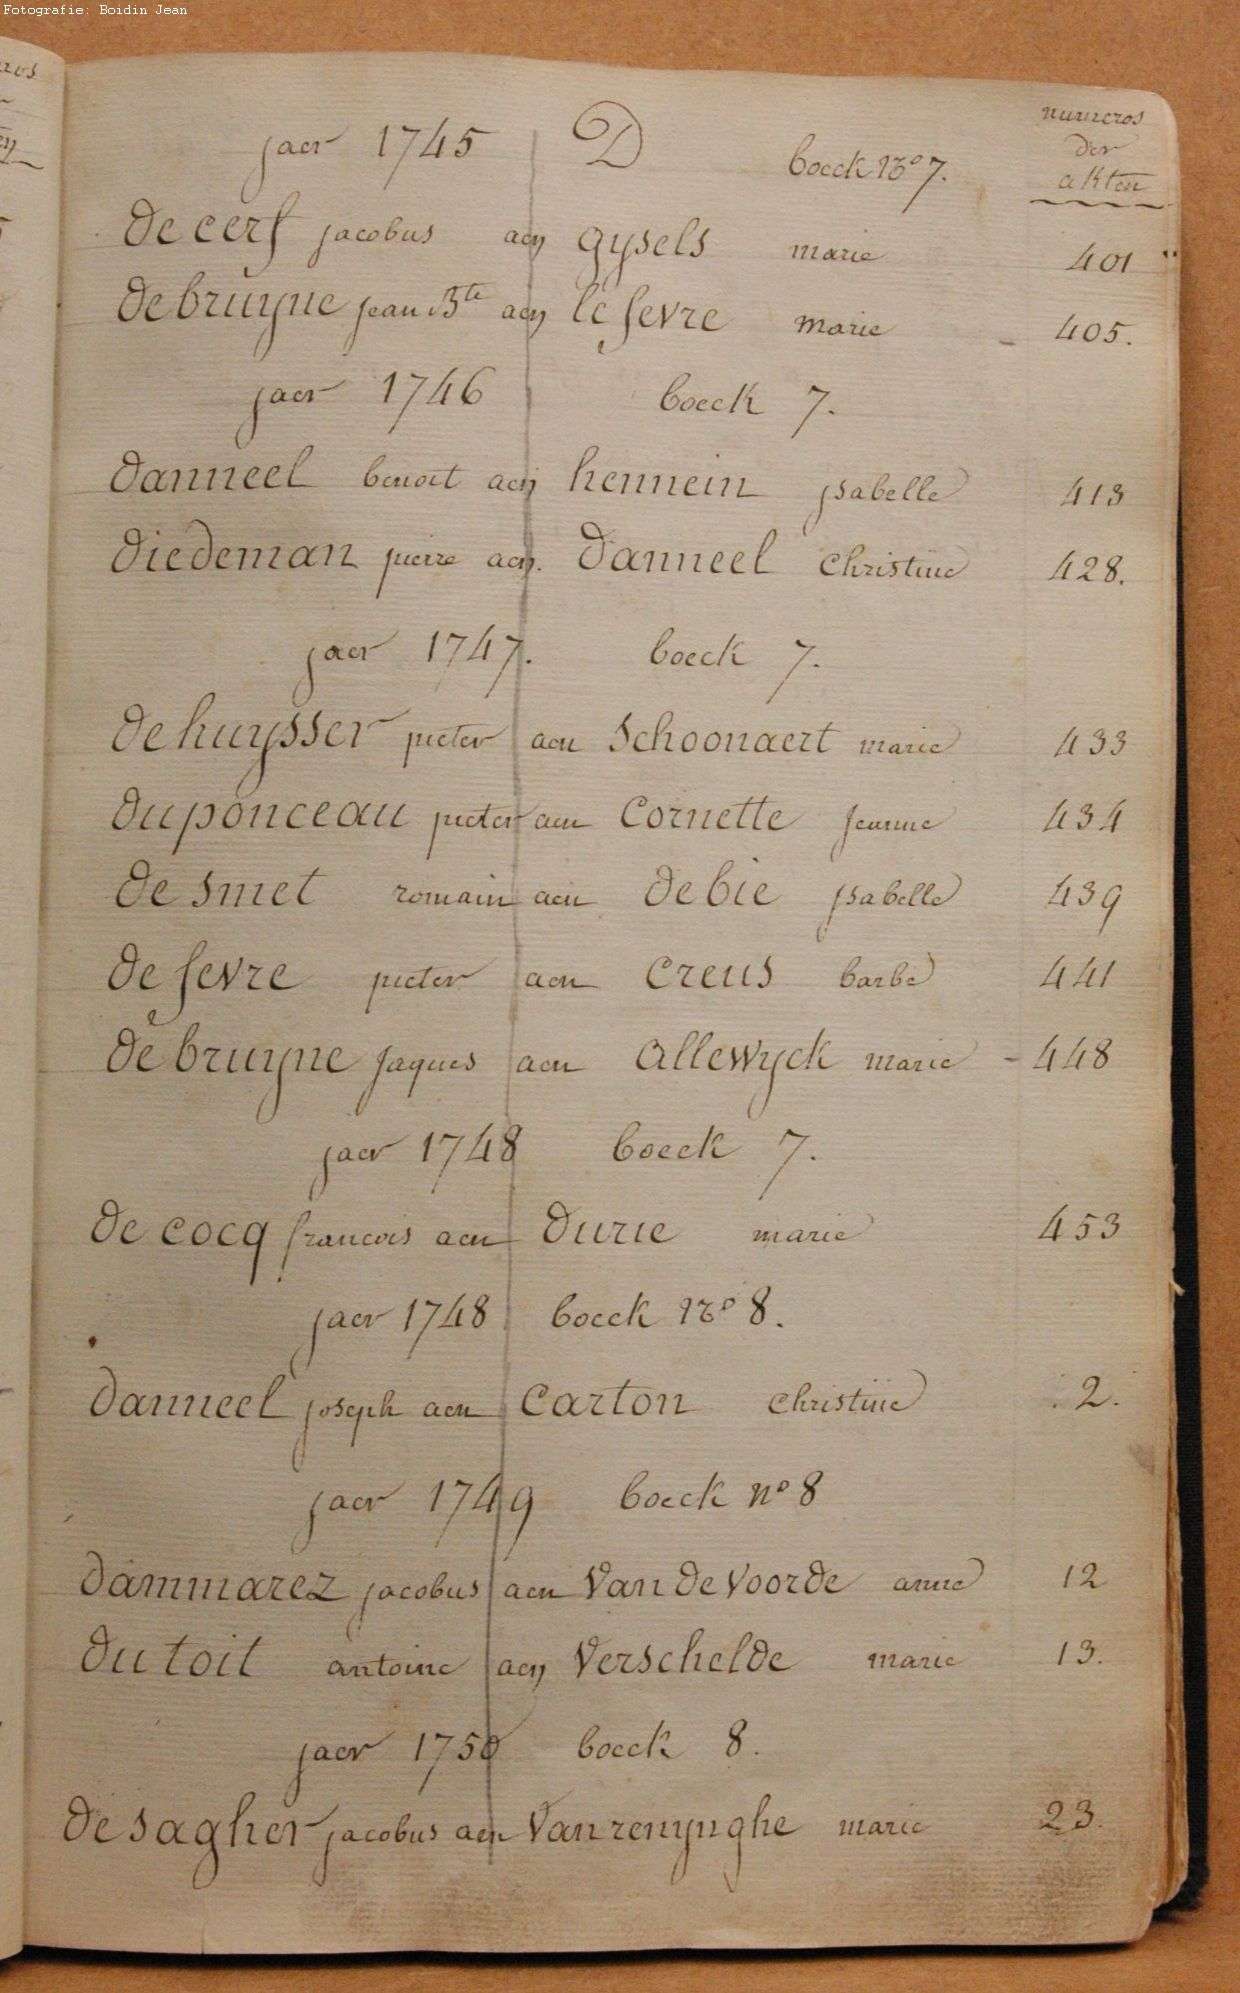 Fotografie: Boidin Jean
numeros
der
akten
jaer 1745 D boeck No 7.
de cerf jacobus aen gysels marie 401
debruyne jean Bte aen lefevre marie 405.
jaer 1746 boeck 7.
danneel benoit aen hennein ysabelle 413
diedeman pierre aen. danneel christine 428.
jaer 1747. boeck 7.
dehuysser pieter aen schoonaert marie 433
duponceau pieter aen cornette jeanne 434
de smet romain aen debie ysabelle 439
de fevre pieter aen creus barbe 441
de bruyne jaques aen allewyck marie - 448
jaer 1748 boeck 7.
de cocq francois aen durie marie 453
jaer 1748 boeck No 8.
danneel joseph aen carton christine 2.
jaer 1749 boeck no 8
dammarez jacobus aen van de voorde anne 12
du toit antoine aen verschelde marie 13.
jaer 1750 boeck 8.
de sagher jacobus aen vanrenynghe marie 23.